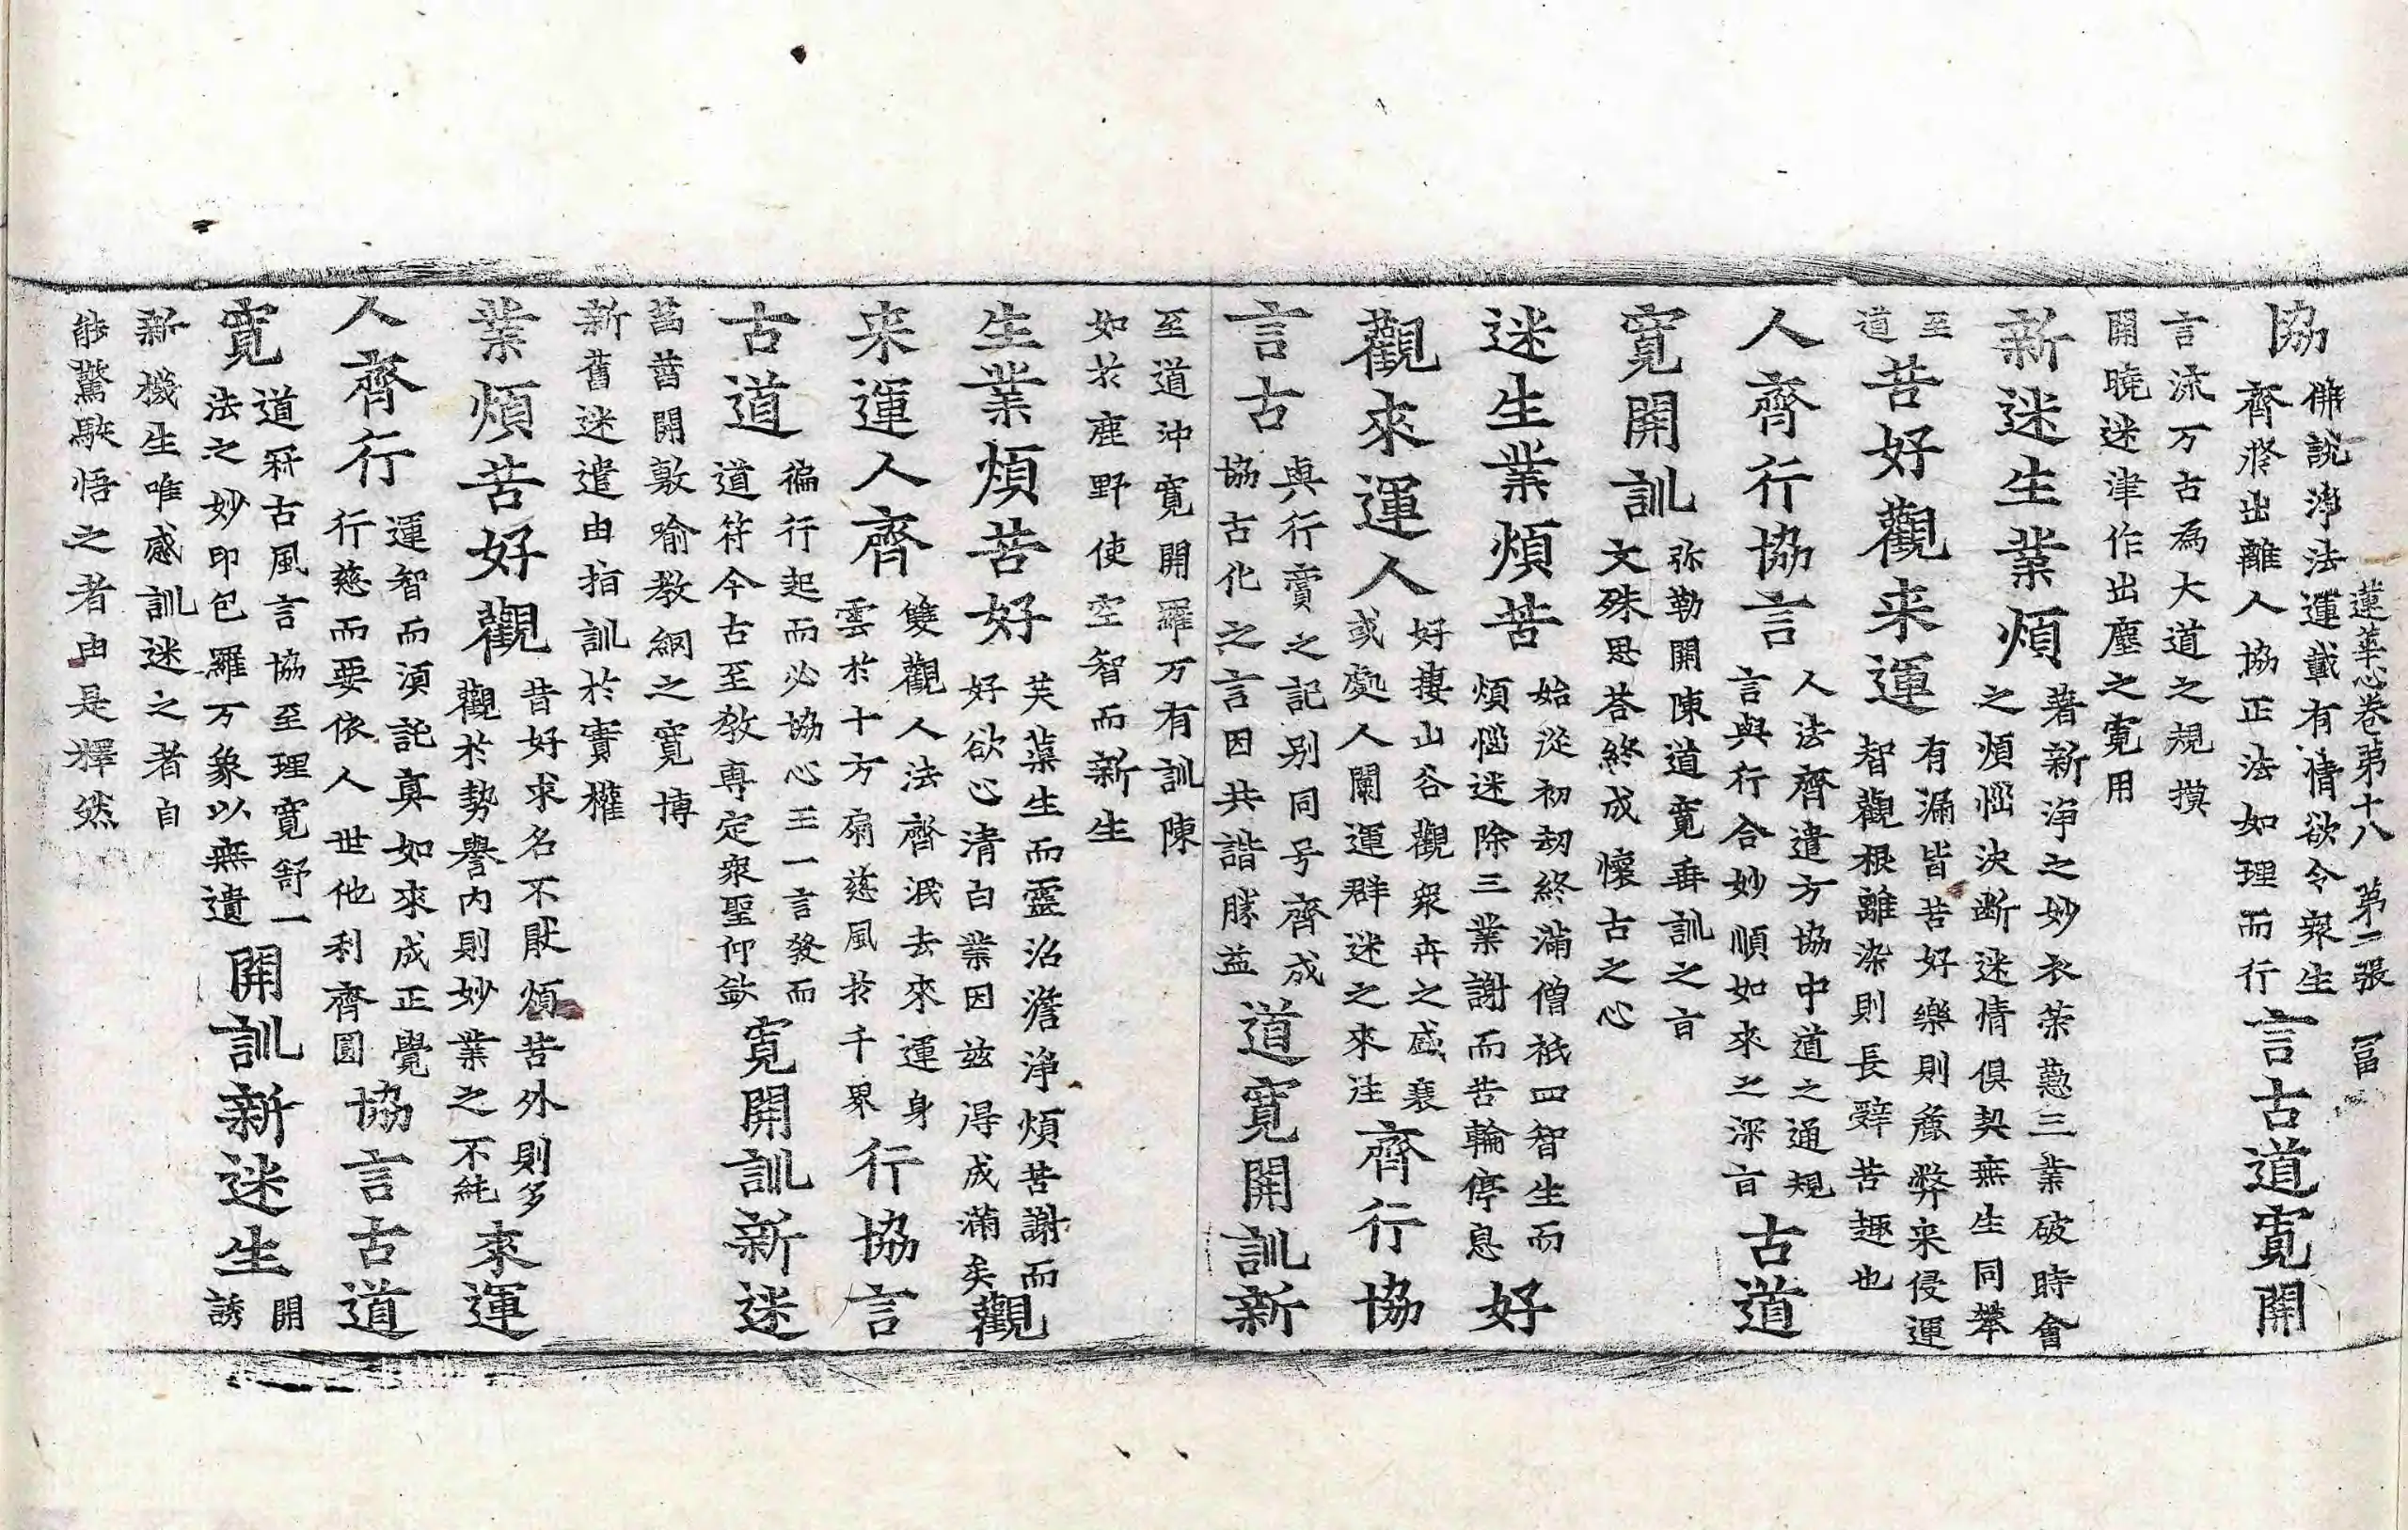 蓮華心卷第十八 第二張 冨
協
佛說淨法運載有情欲令衆生
齊登出離人協正法如理而行
言古道寛開
言流万古為大道之規摸
開曉迷津作出塵之寛用
新迷生業煩
著新淨之妙衣 三業破時會
之煩惱決断迷情俱契無生同攀
至
道
苦好觀来運
有漏皆苦好樂則 弊来侵運
智觀根離染則長辤苦趣也
人齊行協言
人法齊遣方協中道之通規
言與行合妙順如來之深旨
古道
寛開訓
弥勒開陳道寛垂訓之旨
文殊思荅終成懷古之心
迷生業煩苦
始從初劫終滿僧祇四智生而
煩惱迷除三業謝而苦輪停息
好
觀來運人
好摟山谷觀衆卉之盛衰
或處人闤運群迷之來往
齊行協
言古
與行賣之記别同号齊成
協古化之言因共諧勝益
道寛開訓新
至道沖寛開羅万有訓陳
如於鹿野使空智而新生
生業煩苦好
芙蕖生而靈沼澹淨煩苦謝而
好欲心清白業因兹得成滿矣
觀
来運人齊
雙觀人法齊泯去來運身
雲於十方扇慈風於千界
行協言
古道
徧行起而必協心王一言發而
道符今古至教專定衆聖仰欽
寛開訓新迷
菡萏開敷喻教網之寛博
新舊迷遣由指訓於實權
業煩苦好觀
昔好求名不猒煩苦外則多
觀於勢譽内則妙業之不純
來運
人齊行
運智而須託真如來成正覺
行慈而要依人世他利齊圓
協言古道
寛
道冠古風言協至理寛舒一
法之妙印包羅万象以無遺
開訓新迷生
開
誘
新機生唯感訓迷之者自
能驚駭悟之者由是釋然